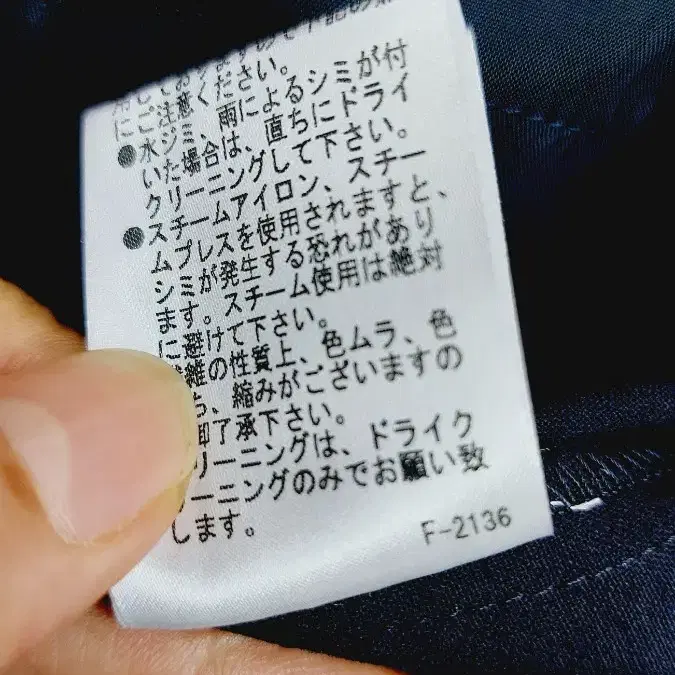 にご注意ください。
●水ジミ、雨によるシミが付
いた場合は、直ちにドライ
クリーニングして下さい。
●スチームアイロン、スチー
ムプレスを使用されますと、
シミが発生する恐れがあり
ます。スチーム使用は絶対
に避けて下さい。
維の性質上、色ムラ、色
ち、縮みがございますの
御了承下さい。
リーニングは、ドライク
ーニングのみでお願い致
します。
F-2136